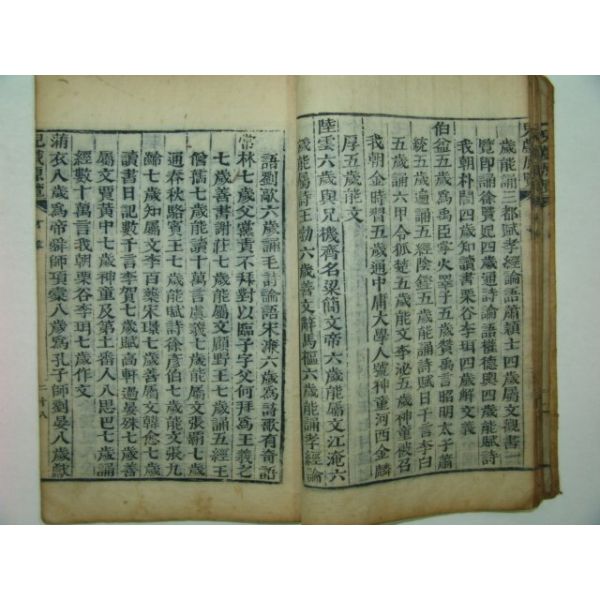 歲能誦三都賦孝經論語蕭穎士四歲屬文觀書一
覽卽誦徐賢妃四歲通詩論語權德輿四歲能賦詩
我朝朴誾四歲知讀書栗谷李珥四歲解文義
伯益五歲爲禹臣掌火睪子五歲贊禹言昭明太子蕭
五歲誦六甲令狐楚五歲能文李泌五歲神童被召
我朝金時習五歲通中庸大學人號神童河西金麟
厚五歲能文
陸雲六歲與兄機齊名梁簡文帝六歲能屬文江淹六
歲能屬詩王勃六歲善文辭馬樞六歲能誦孝經論
語劉歊六歲誦毛詩論語宋濂六歲爲詩歌有奇語
常林七歲父黨責不拜對以臨子字父何拜爲王羲之
七歲善書謝莊七歲能屬文顧野王七歲誦五經王
僧孺七歲能讀十萬言虞羲七歲能屬文張霸七歲
通春秋駱賓王七歲能賦詩徐彦伯七歲能文張九
齡七歲知屬文李百藥宋璟七歲善屬文韓愈七歲
讀書日記數千言李賀七歲賦高軒過晏殊七歲善
屬文賈黃中七歲神童及第土番人八思巴七歲誦
經數十萬言我朝栗谷李珥七歲作文
蒲衣八歲爲帝舜師項橐八歲爲孔子師劉晏八歲獻